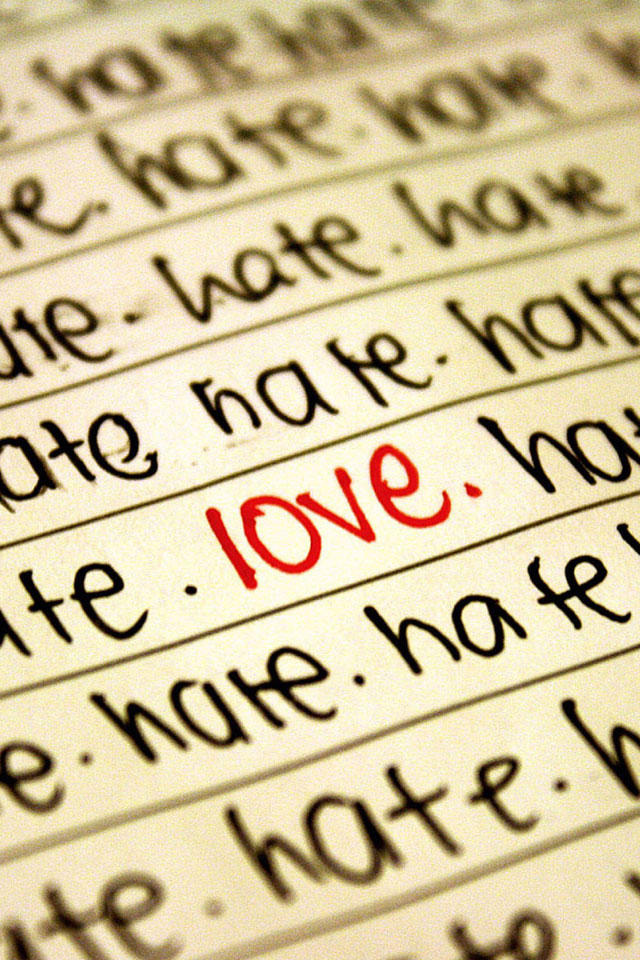 e. hate hate
te. hate. hate. h
ate. hate. hate
ate hate. hate
ate . love. hat
e. hate. hate h
ate . hate. h
te .